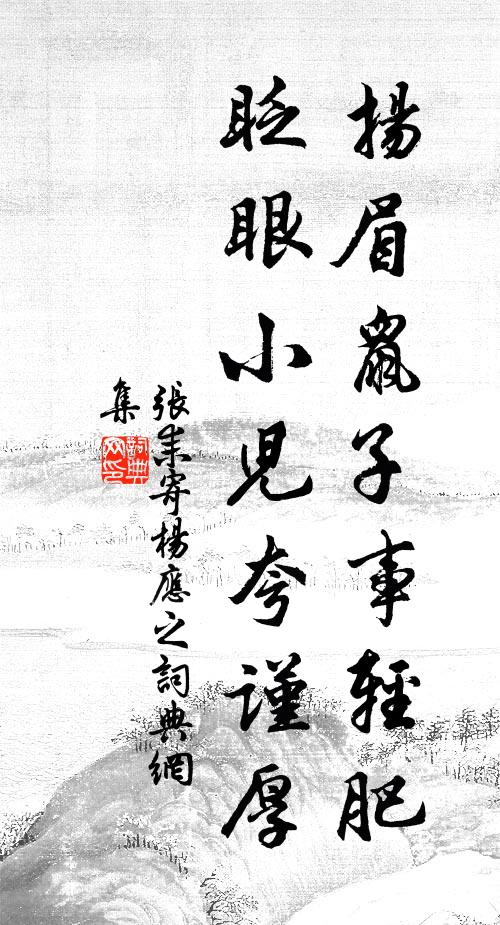 揚眉鼠子事輕肥
眨眼小兒夸謹厚
張耒寄楊應之詞典網
集
詞典
网印